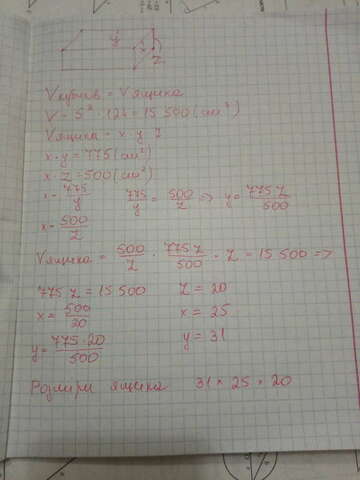 y
x
z
Vкубиків = Vящика
V = 5³ · 124 = 15 500 (см³)
Vящика = x y z
x · y = 775 (см²)
x · z = 500 (см²)
x = 775/y   775/y = 500/z => y = 775z/500
x = 500/z
Vящика = 500/z · 775z/500 · z = 15 500 =>
775 z = 15 500   z = 20
x = 500/20   x = 25
y = 775·20/500   y = 31
Розміри ящика 31 × 25 × 20